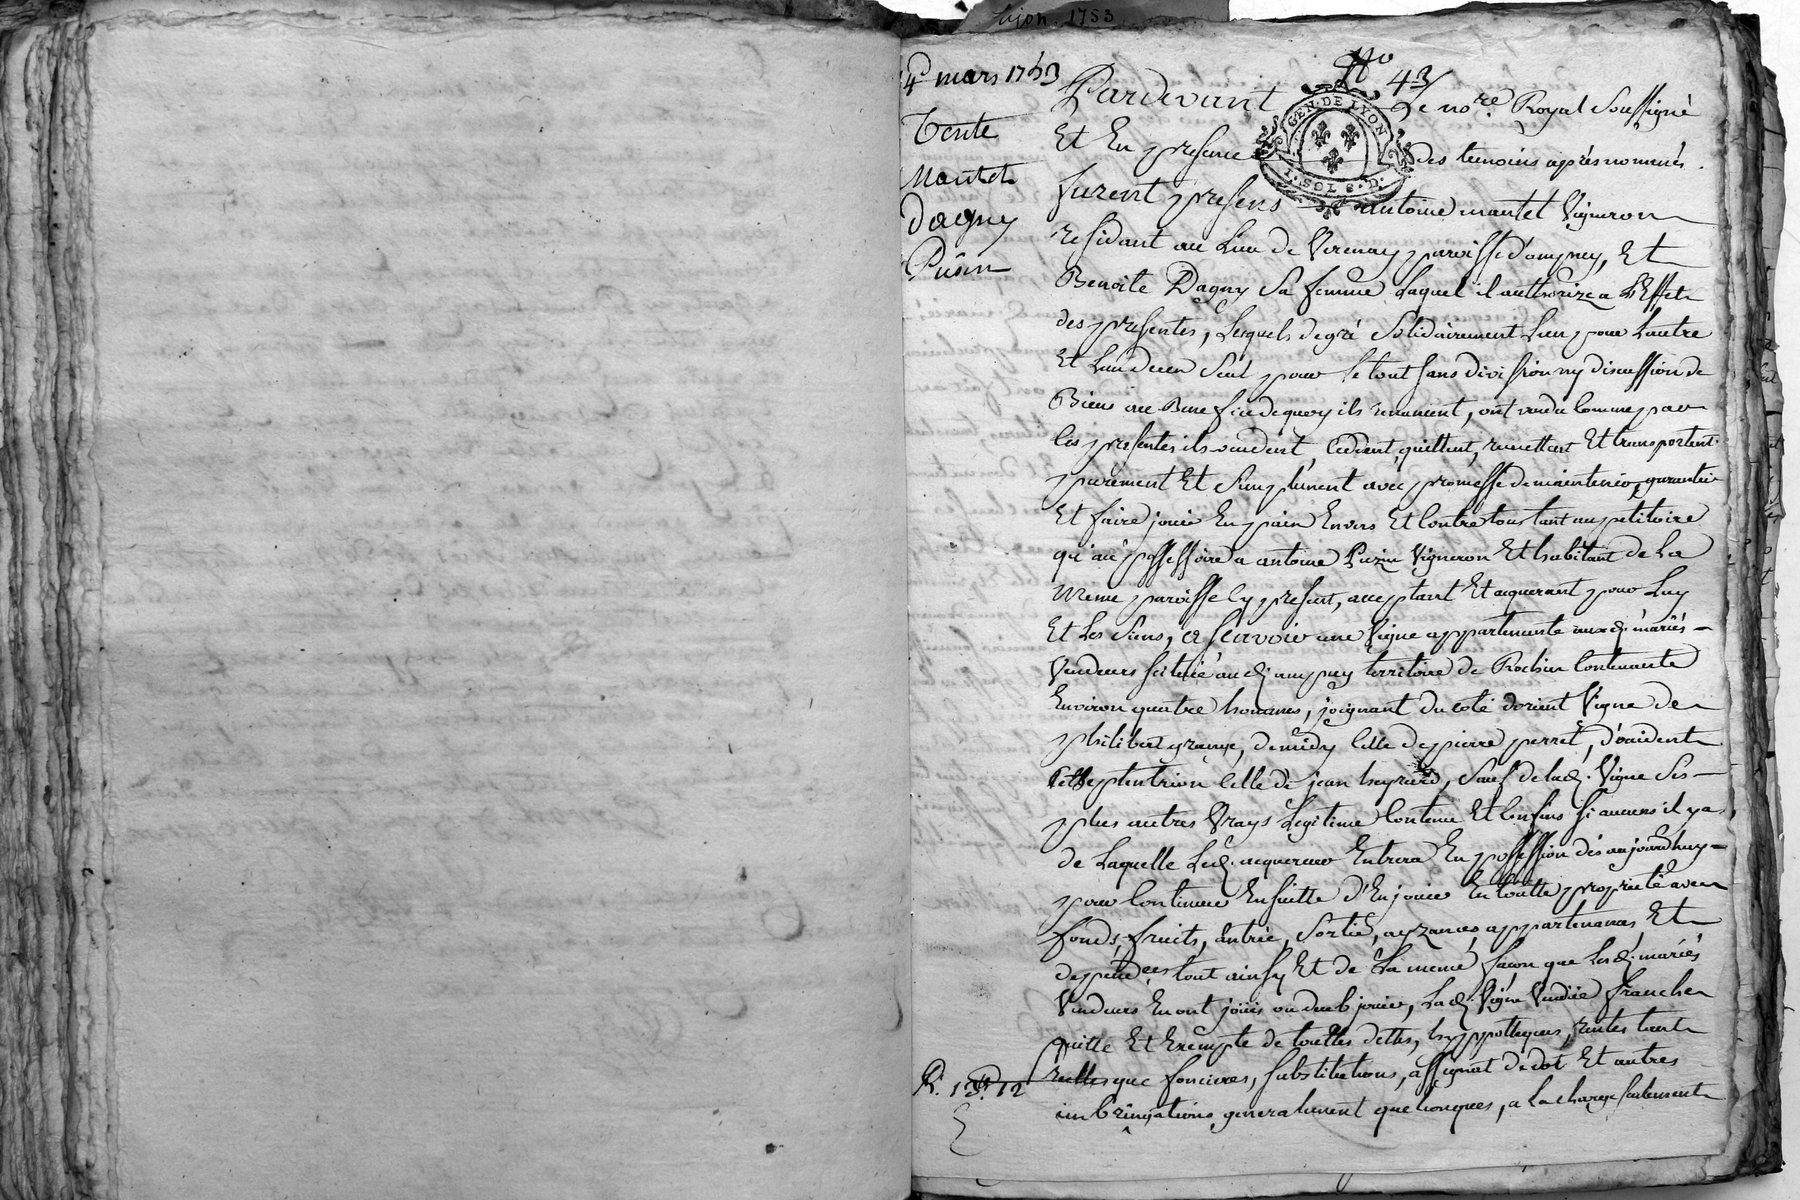 lyon 1753
No 43
4 mars 1753
Vente
Mantet
Dagny
Puzin
GEN. DE LYON
1. SOL 8. D.
Pardevant Le no.re Royal Soussigné
Et En presence des temoins après nommés
furent presens antoine mantet Vigneron
residant au Lieu de Verenay paroisse d'ampuy, Et
Benoite Dagny Sa femme Laquel il authorize a L'Effet
des presentes, Lesquels de gré Solidairement L'un pour L'autre
Et L'un d'eux Seul pour Le tout sans division ny discussion de
Biens au Benefice de quoy ils renoncent, ont vendu Comme par
Ces presentes ils vendent, Cedent, quittent, remettent Et transportent
purement Et Simplement avec promesse de maintenir, garantir
Et faire jouir En paix Envers Et Contre tous tant au petitoire
qu'au possessoire a antoine Puzin Vigneron Et habitant de La
meme paroisse Cy present, acceptant Et acquerant pour Luy
Et Les Siens, a Scavoir une Vigne appartenante auxd. mariés
Vendeurs scituée aud. ampuy territoire de Rochin Contenante
Environ quatre hommes, joignant du coté d'orient Vigne de
philibert grange, de midy Celle de pierre perret, d'occident
Et Septentrion Celle de jean, Sauf de lad. Vigne Ses
plus autres Vrays Legitime Contenu Et Confins si aucuns il y a,
de Laquelle Led. acquereur Entrera En possession dès aujourdhuy
pour Continuer Ensuitte d'En jouir En toutte proprieté avec
fonds, fruits, Entrée, Sortie, ayzances, appartenances, Et
dependces tout ainsy Et de La meme façon que Lesd. mariés
Vendeurs En ont jouis ou deub jouir, Lad. Vigne Vendüe franche
quitte Et Exempte de touttes dettes, hyppotheques, rentes tant
réelles que foncieres, substitutions, assignat de dot Et autres
imbringations generalement quelconques, a la charge seulement
R. 13# 12